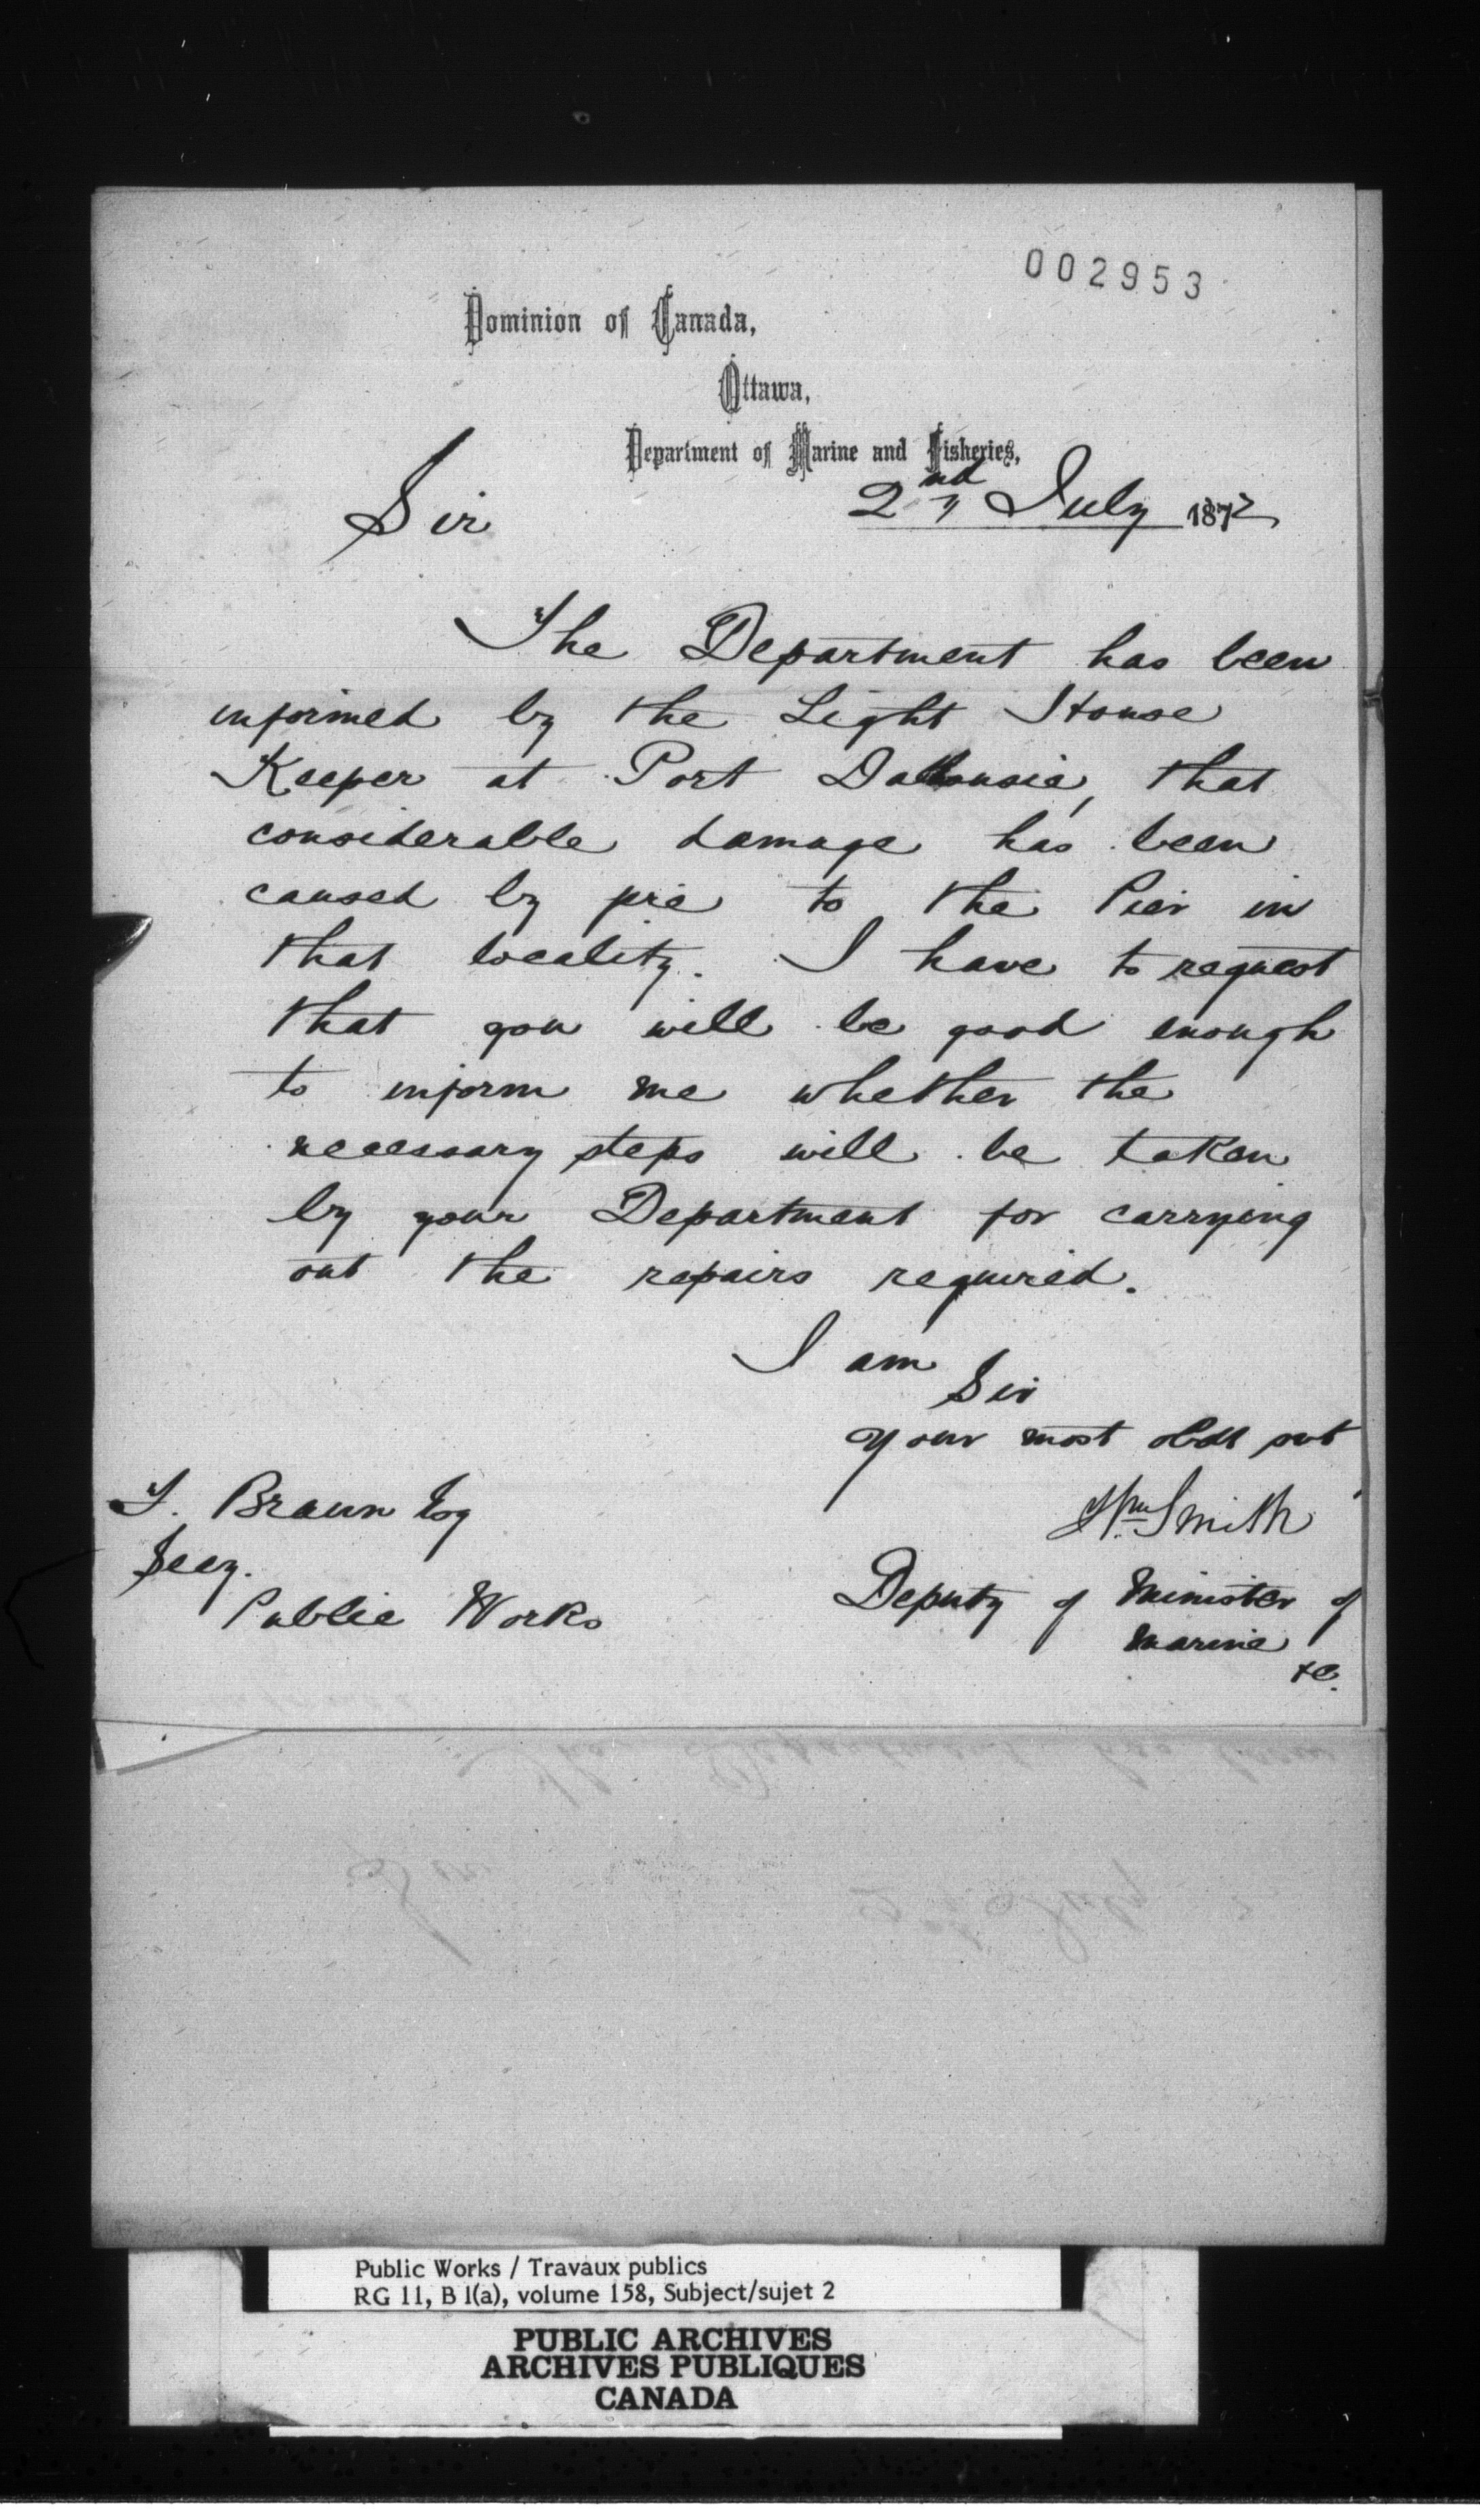 002953
Dominion of Canada,
Ottawa,
Department of Marine and Fisheries,
2nd July 1872
Sir
The Department has been
informed by the Light House
Keeper at Port Dalhousie, that
considerable damage has been
caused by fire to the Pier in
that locality. I have to request
that you will be good enough
to inform me whether the
necessary steps will be taken
by your Department for carrying
out the repairs required.
I am
Sir
Your most obdt svt
Wm Smith
Deputy of Minister of
Marine
&c.
F. Braun Esq
Secy.
Public Works
Public Works / Travaux publics
RG 11, B 1(a), volume 158, Subject/sujet 2
PUBLIC ARCHIVES
ARCHIVES PUBLIQUES
CANADA